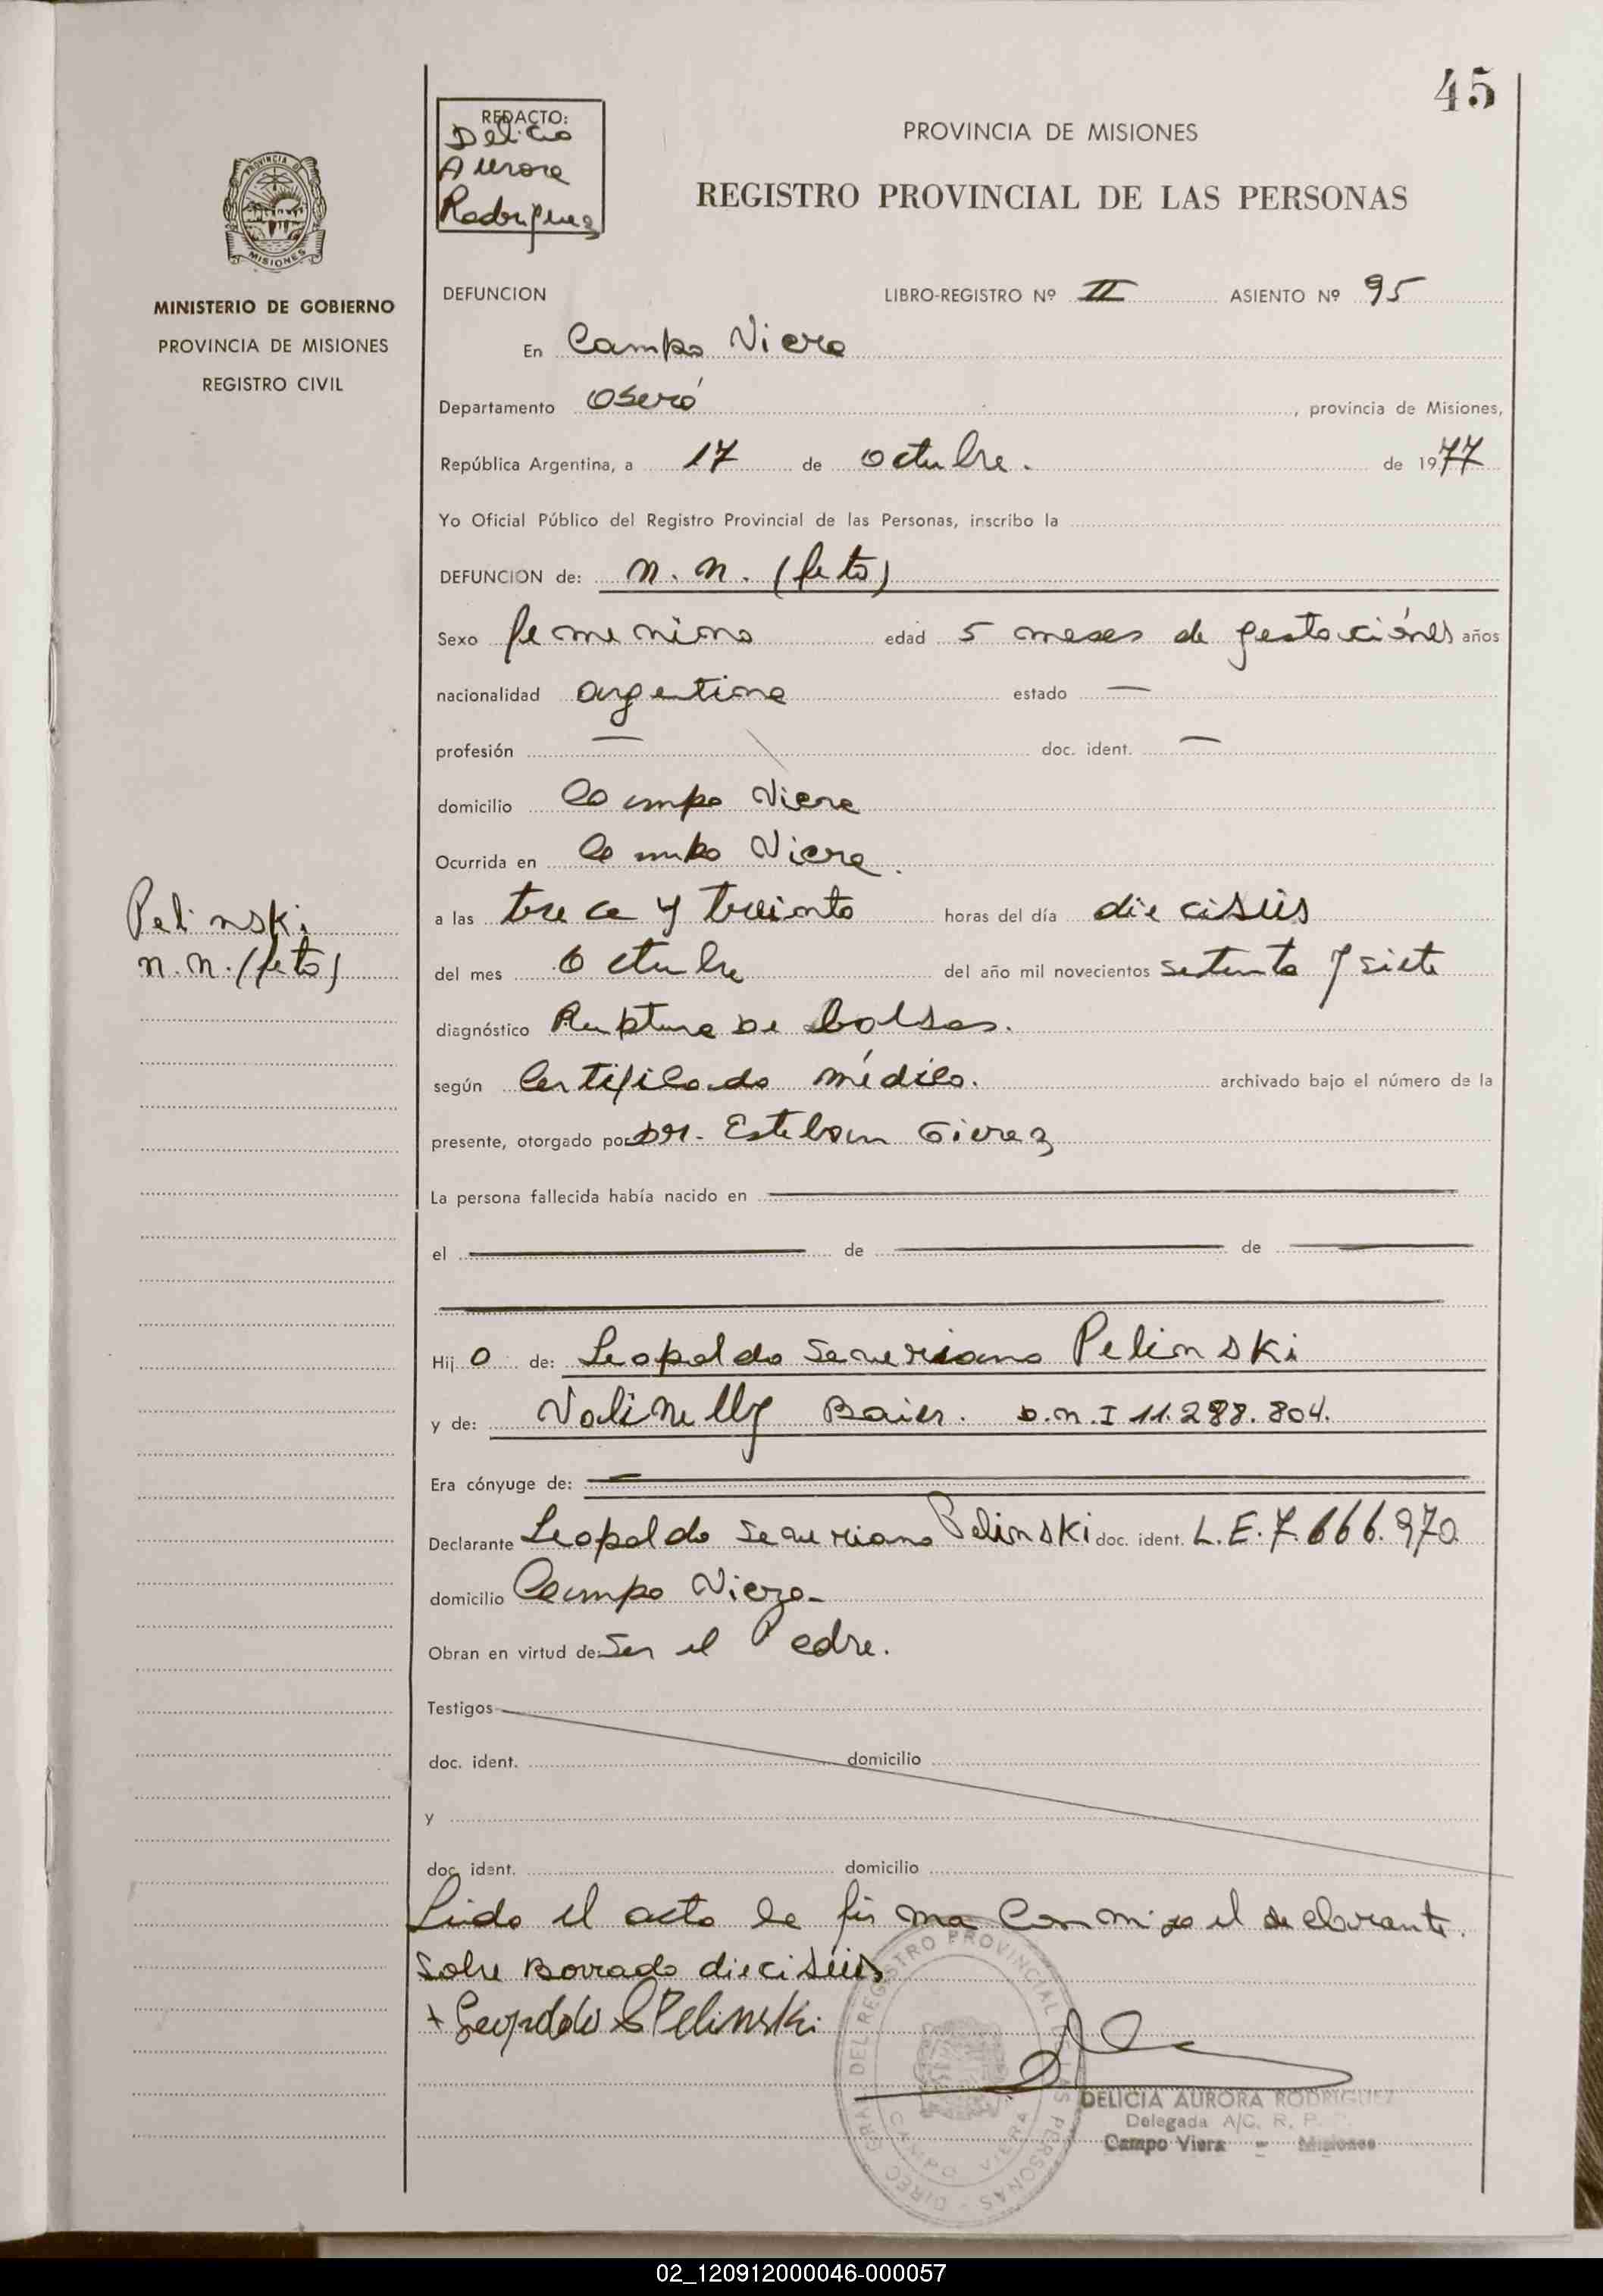 45
REDACTO:
Delicia
Aurora
Rodriguez
PROVINCIA DE MISIONES
REGISTRO PROVINCIAL DE LAS PERSONAS
PROVINCIA DE
MISIONES
MINISTERIO DE GOBIERNO
PROVINCIA DE MISIONES
REGISTRO CIVIL
DEFUNCION LIBRO-REGISTRO Nº II ASIENTO Nº 95
En Campo Viera
Departamento Oberá, provincia de Misiones,
República Argentina, a 17 de octubre. de 1977
Yo Oficial Público del Registro Provincial de las Personas, inscribo la
DEFUNCION de: n. n. (feto)
Sexo femenino edad 5 meses de gestación años
nacionalidad argentina estado —
profesión — doc. ident. —
domicilio Campo Viera
Ocurrida en Campo Viera.
a las trece y treinta horas del día dieciséis
Pelinski
n.n. (feto)
del mes octubre del año mil novecientos setenta y siete
diagnóstico Ruptura de bolsas.
según Certificado médico. archivado bajo el número de la
presente, otorgado por Dr. Esteban
La persona fallecida había nacido en
el de de
Hij o de: Leopoldo Severiano Pelinski
y de: Valinelly Baier. D.N.I 11.288.804.
Era cónyuge de:
Declarante Leopoldo Severiano Pelinski doc. ident. L.E. 7.666.970
domicilio Campo Viera-
Obran en virtud de: Ser el Padre.
Testigos
doc. ident. domicilio
y
doc. ident. domicilio
Leida el acta la firma conmigo el declarante.
Sobre borrado dieciséis
+ Leopoldo S Pelinski
DIREC. GRAL. DEL REGISTRO PROVINCIAL DE LAS PERSONAS
CAMPO VIERA
DELICIA AURORA RODRIGUEZ
Delegada A/C. R. P. P.
Campo Viera - Misiones
02_120912000046-000057